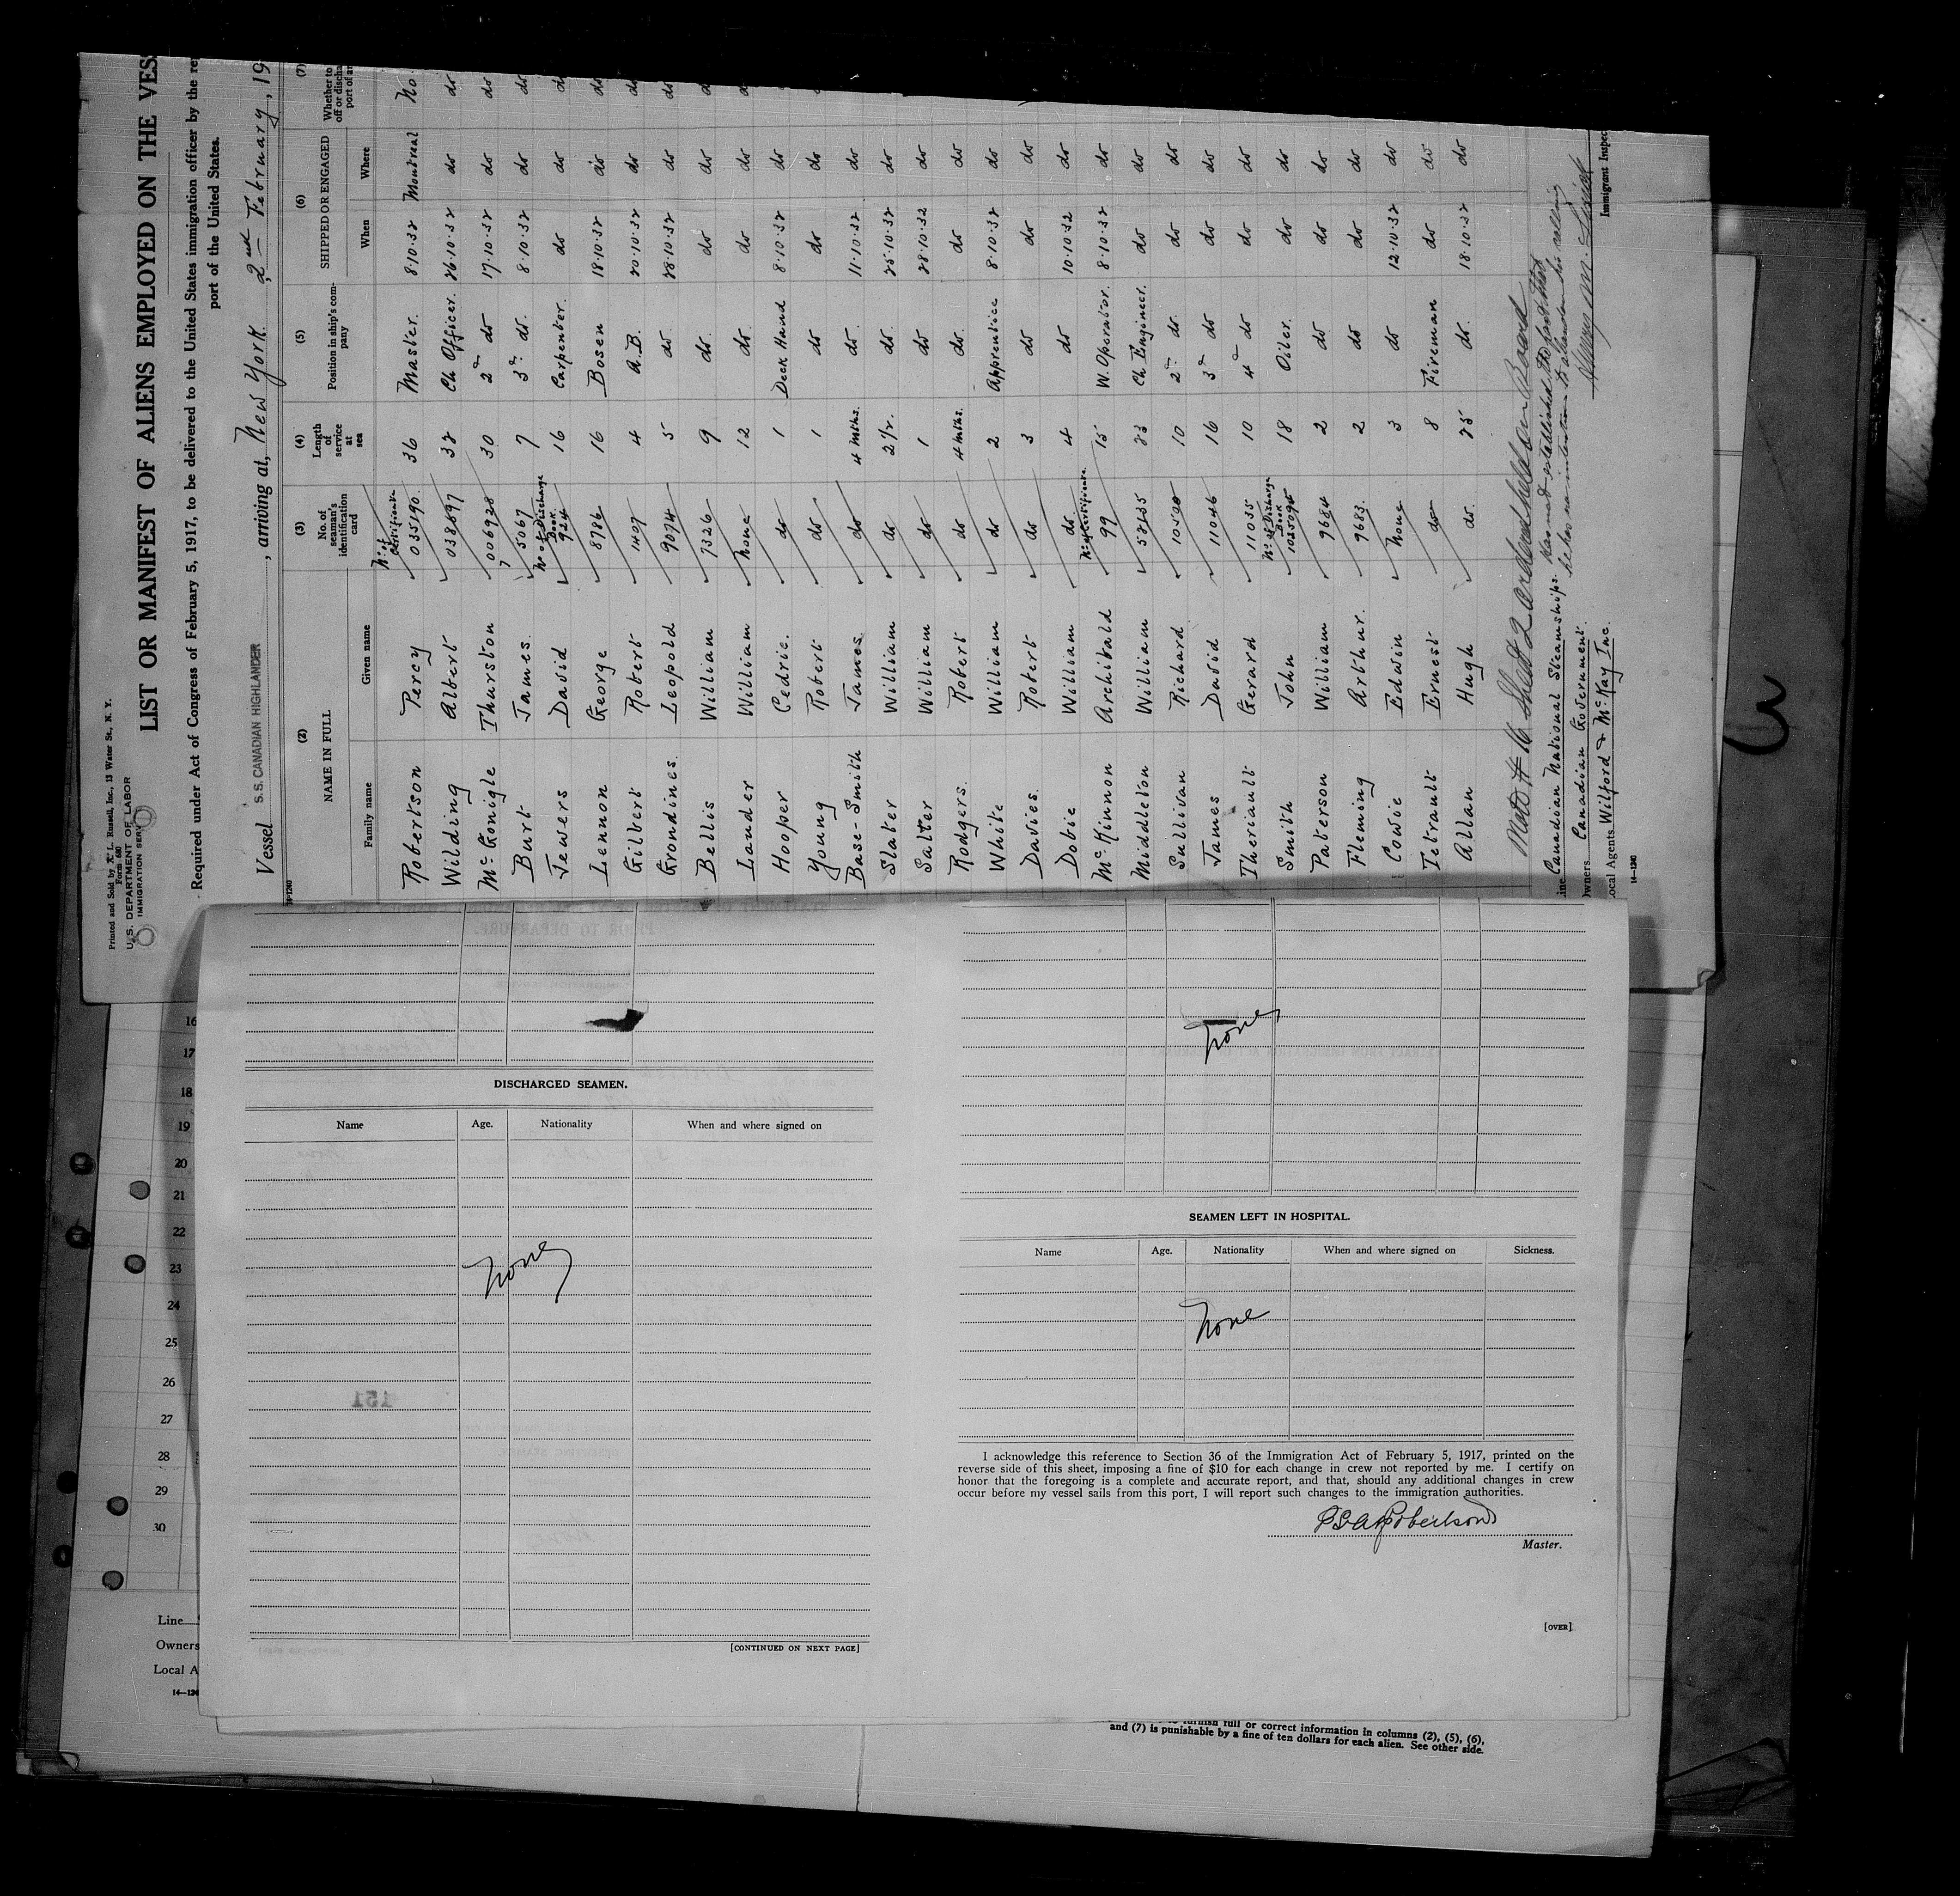 Printed and Sold by R. L. Russell, Inc., 13 Water St., N. Y.
Form 680
U.S. DEPARTMENT OF LABOR
IMMIGRATION SERV
LIST OR MANIFEST OF ALIENS EMPLOYED ON THE VES
Required under Act of Congress of February 5, 1917, to be delivered to the United States immigration officer by the re
port of the United States.
Vessel S.S. CANADIAN HIGHLANDER, arriving at, New York 2nd February, 19
(2) (3) (4) (5) (6) (7)
NAME IN FULL No. of seaman's identification card Length of service at sea Position in ship's company SHIPPED OR ENGAGED Whether to
Family name Given name When Where
No. of Certificate
Robertson Percy 035190. 36 Master. 8.10.32 Montreal No.
Wilding Albert 038697 32 Ch Officer. 26.10.32 do do
McGonigle Thurston 006928 30 2d do 17.10.32 do do
Burt James. 5067 7 3d do. 8.10.32 do do
No. of Discharge Book.
Jewers David 924 16 Carpenter. do do do
Lennon George 8986 16 Bosen 18.10.32 do do
Gilbert Robert 1407 4 A.B. 20.10.32 do do
Grondines. Leopold 9074 5 do 28.10.32 do do
Bellis William 7326 9 do. do do d
Lander William None 12 do. do do
Hooper Cedric. do 1 Deck Hand 8.10.32 do
Young Robert do 1 do do do
Base-Smith James do 4 mths. do. 11.10.32 do
Slater William do 2 1/2. do. 25.10.32 do
Salter William do 1 do 28.10.32 do
Rodgers. Robert do 4 mths. do. do do
White William do 2 Apprentice 8.10.32 do
Davies. Robert do 3 do do do
Dobie William do. 4 do 10.10.32 do
No. of Certificate.
McKinnon Archibald 99 15 W. Operator. 8.10.32 do
Middleton William 58135 23 Ch Engineer. do do
Sullivan Richard 10500 10 2d do. do do
James David 11046 16 3d do do do
Theriault Gerard 11035 10 4th do do do
No. of Discharge Book
Smith John 1025094 18 Oiler. do do
Paterson William 9684 2 do do do
Fleming Arthur. 9683. 2 do do do
Cowie Edwin None 3 do 12.10.32 do
Tetrault Ernest do 8 Fireman do do
Allan Hugh do. 25 do. 18.10.32 do
has not established
he has no intention to abandon his calling
Line Canadian National Steamships.
Owners Canadian Government.
Local Agents Wilford & McKay Inc.
Immigrant Inspec
14—1240
None
DISCHARGED SEAMEN.
Name Age. Nationality When and where signed on
None
[CONTINUED ON NEXT PAGE]
SEAMEN LEFT IN HOSPITAL.
Name Age. Nationality When and where signed on Sickness.
None
I acknowledge this reference to Section 36 of the Immigration Act of February 5, 1917, printed on the
reverse side of this sheet, imposing a fine of $10 for each change in crew not reported by me. I certify on
honor that the foregoing is a complete and accurate report, and that, should any additional changes in crew
occur before my vessel sails from this port, I will report such changes to the immigration authorities.
Robertson
Master.
[OVER]
16
17
18
19
20
21
22
23
24
25
26
27
28
29
30
Line
Owners
Local A
furnish full or correct information in columns (2), (5), (6),
and (7) is punishable by a fine of ten dollars for each alien. See other side.